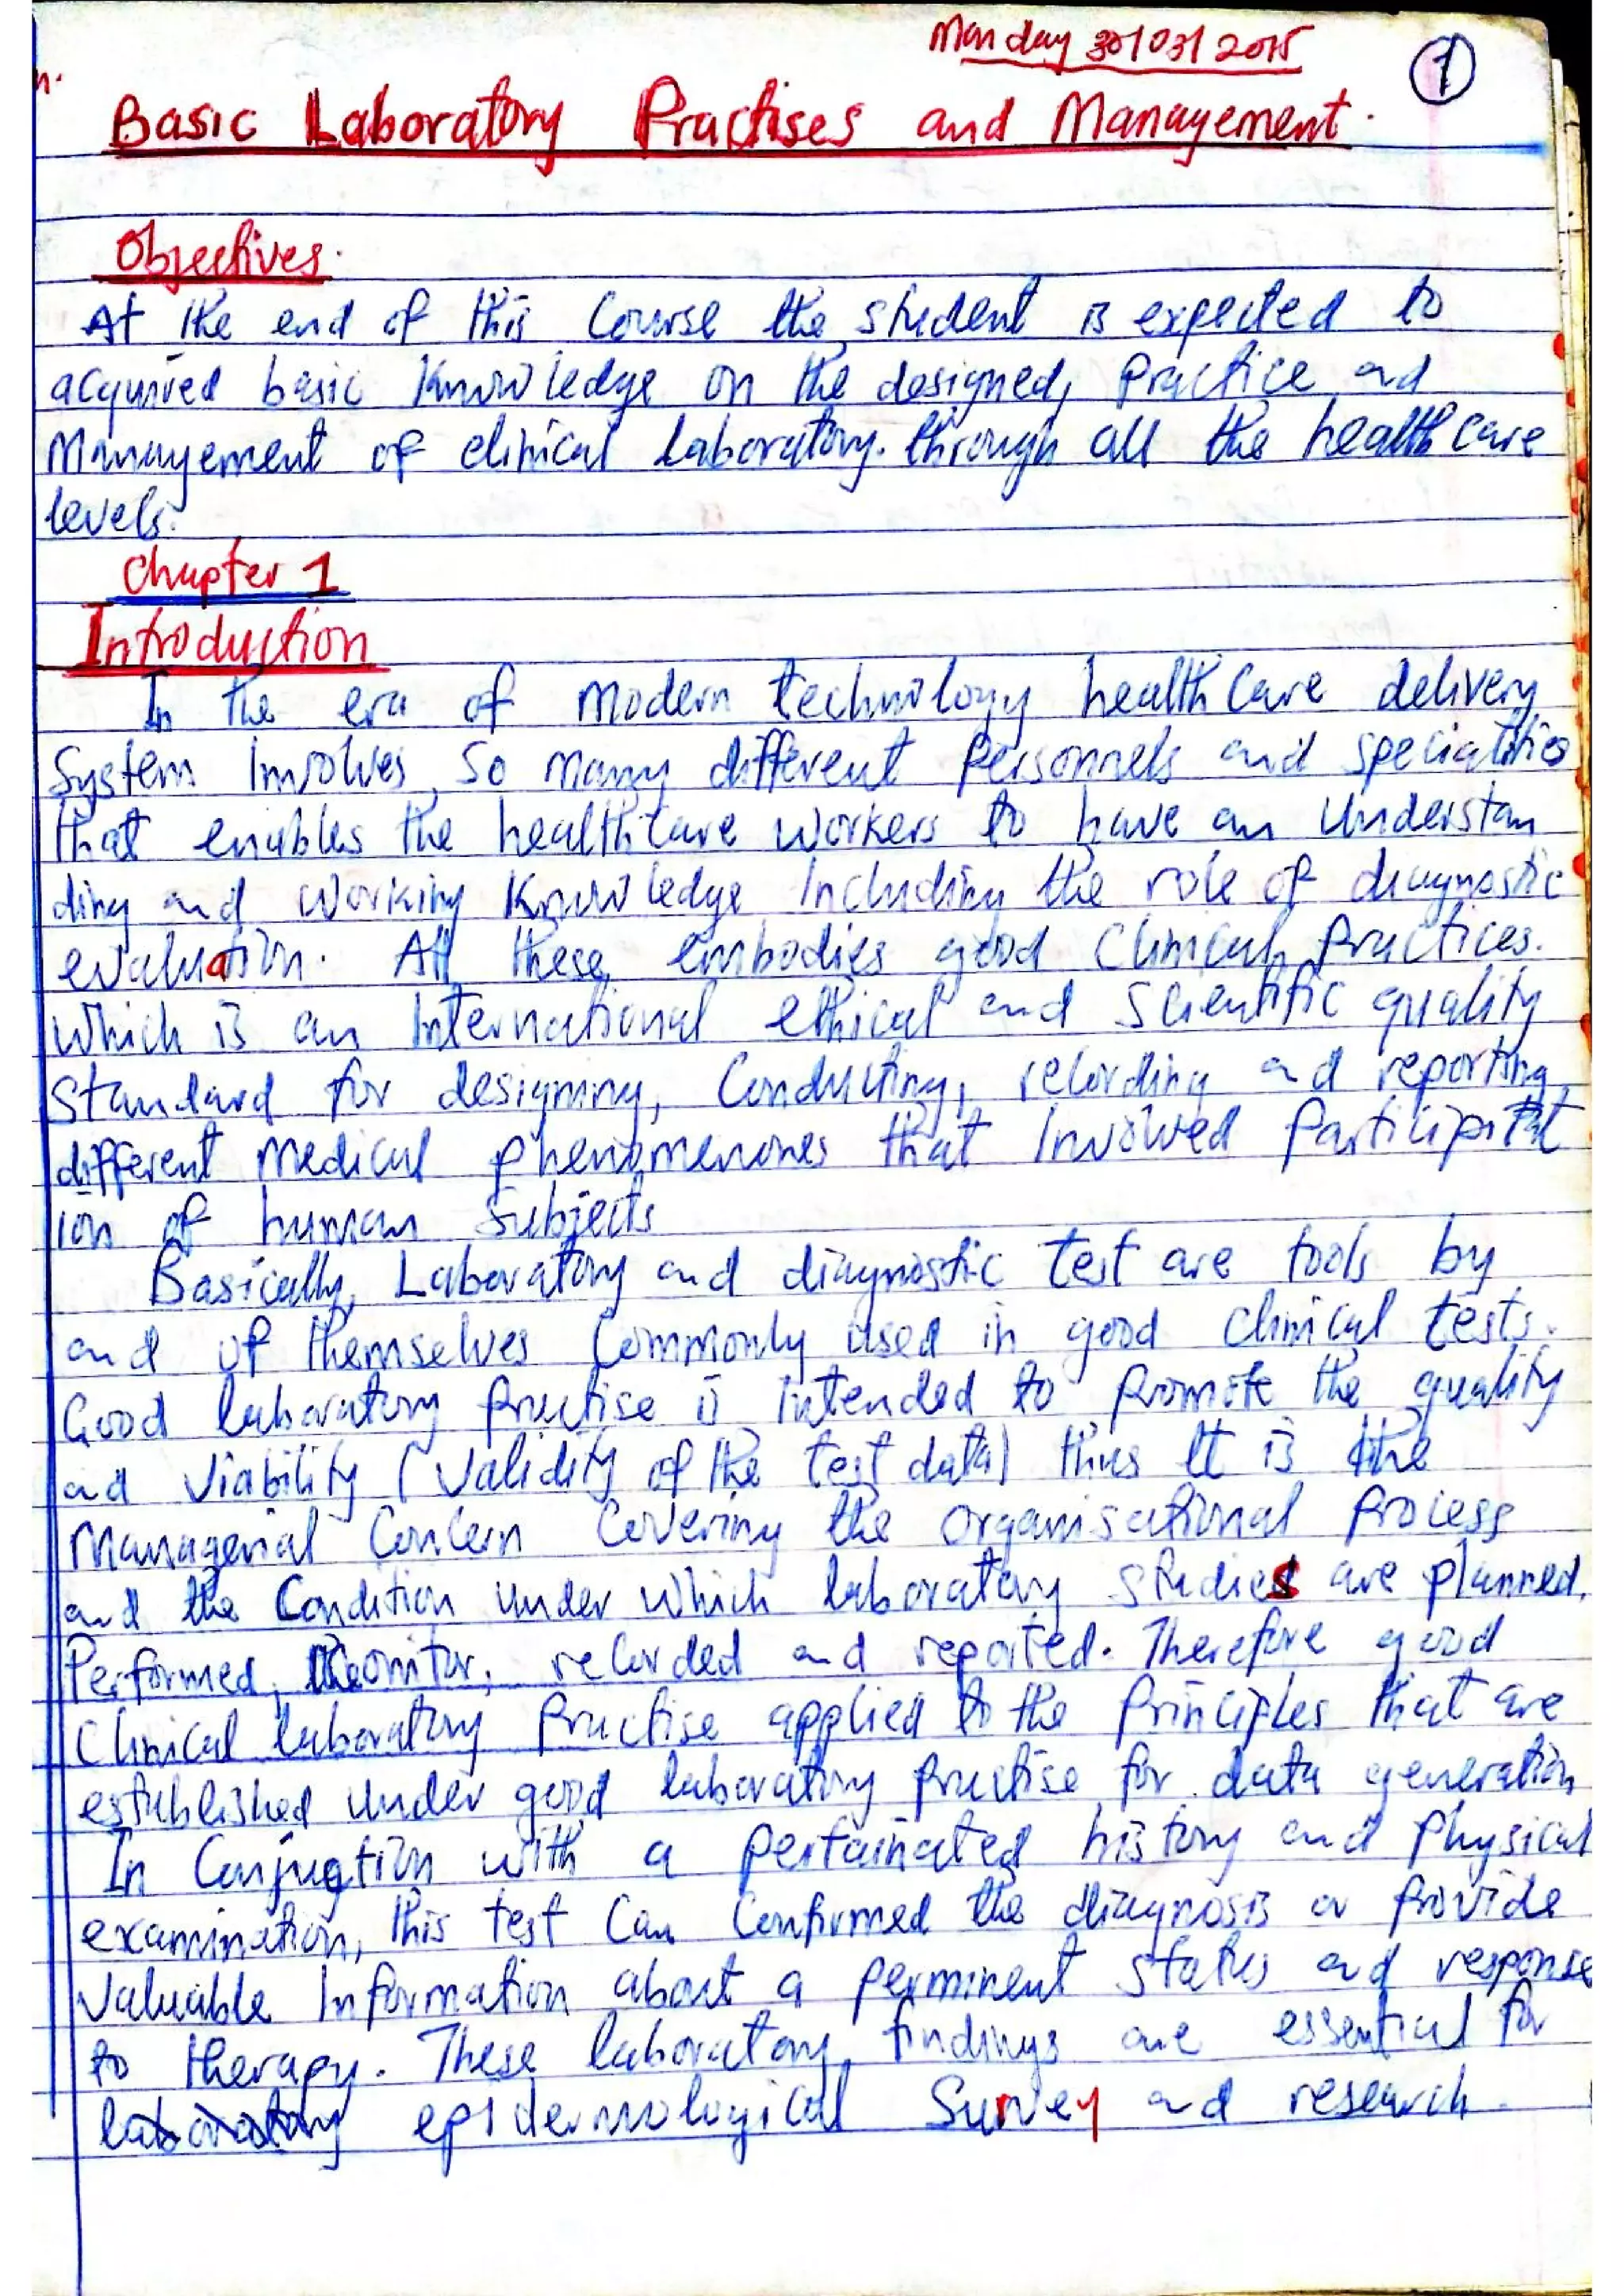 Monday 30/03/2015
1
Basic Laboratory Practises and Management.
Objectives.
At the end of this Course the student is expected to
acquired basic Knowledge on the designed, Practice and
Management of clinical laboratory. through all the health care
levels.
Chapter 1
Introduction
In the era of Modern technology health Care delivery
System Involves, So many different Personnels and specialities
that enables the health Care workers to have an Understan
ding and working Knowledge Including the role of diagnostic
evaluation. All these embodies good Clinical Practices.
which is an International ethical and Scientific quality
Standard for designing, Conducting, recording and reporting
different Medical phenomenones that Involved Participat
ion of human Subjects
Basically, Laboratory and diagnostic test are tools by
and of themselves Commonly used in good Clinical tests.
Good laboratory Practise is Intended to Promote the quality
and Viability (Validity of the test data) thus It is the
Managerial Concern Covering the Organisational Process
and the Condition under which laboratory studies are planned.
Performed, Monitor, recorded and reported. Therefore good
Clinical laboratory Practise applied to the Principles that are
established under good laboratory Practise for data generation
In Conjuction with a Pertainated history and Physical
examination, this test Can Confirmed the diagnosis or Provide
Valuable Information about a Perminent Status and response
to therapy. These laboratory findings are essential for
laboratory epidermological Survey and research.